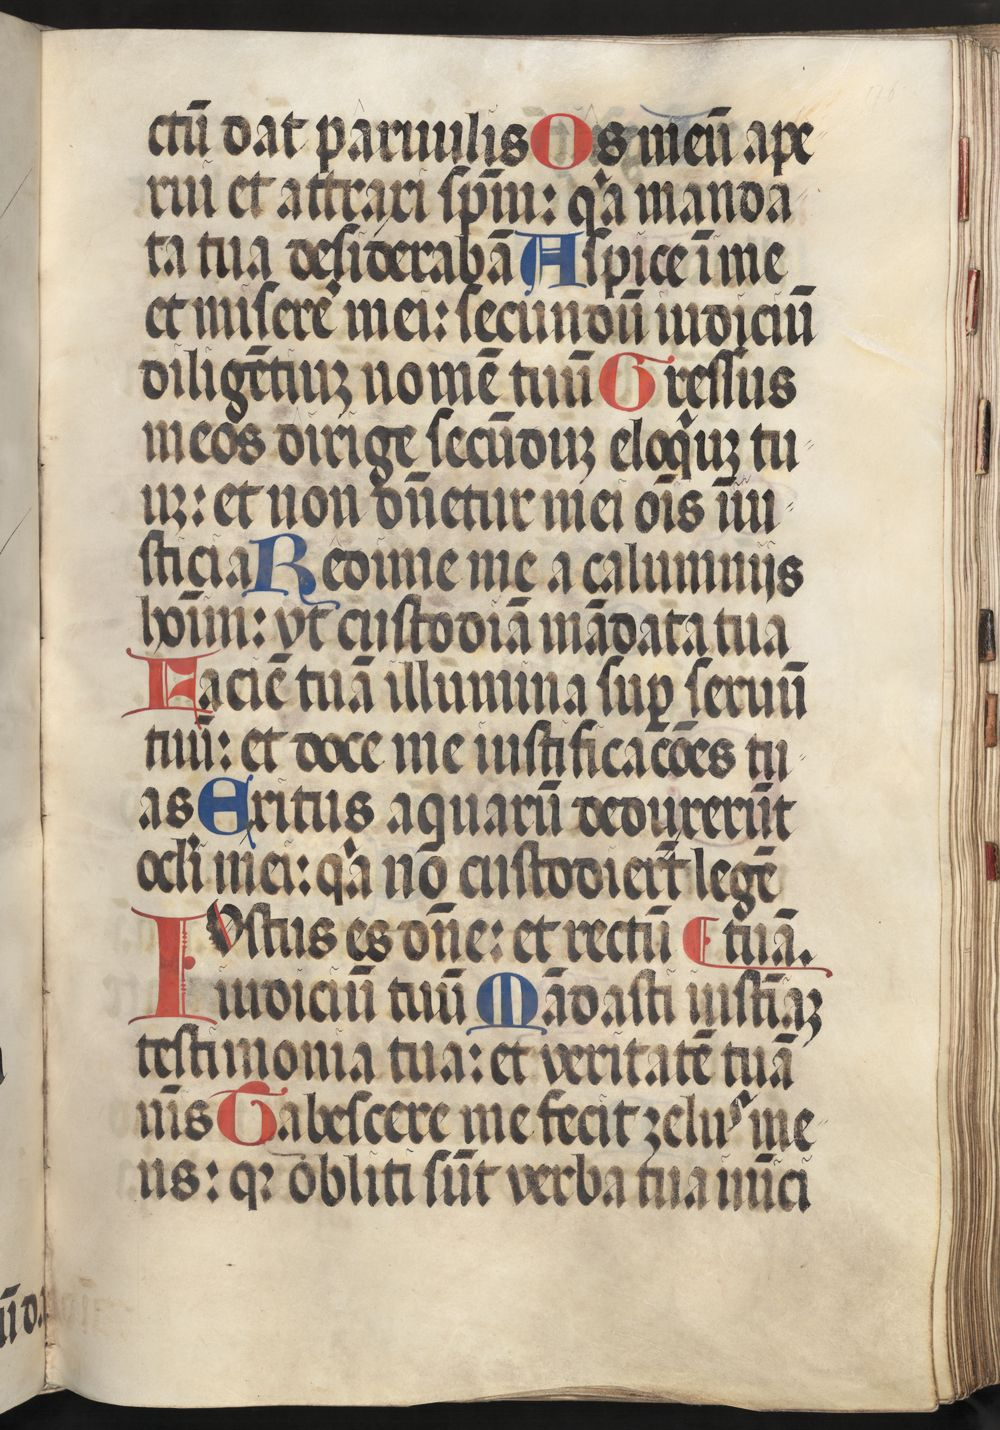 ctū dat paruulis Os meū ape
rui et attraxi sp̄m: qͥa manda
ta tua desiderabā Aspice ī me
et miserẽ mei: secundū iudiciū
diligētiuꝫ nomē tuū Gressus
meos dirige secūduꝫ eloqͥuꝫ tu
uꝫ: et non dn̄etur mei oīs iniu
sticia Redime me a calumniis
hoīm: vt custodiā mādata tua
Faciē tuā illumina suꝑ seruū
tuū: et doce me iustificacōes tu
as Exitus aquarū deduxerūt
ocl̓i mei: qͥa nō custodiert̄ legē
IVstus es dn̄e: et rectū tuā.
iudiciū tuū Mādasti iustīaꝫ
testimonia tua: et veritatē tuā
nīs Tabescere me fecit zeluꝰ me
us: qꝛ obliti sūt verba tua inīci